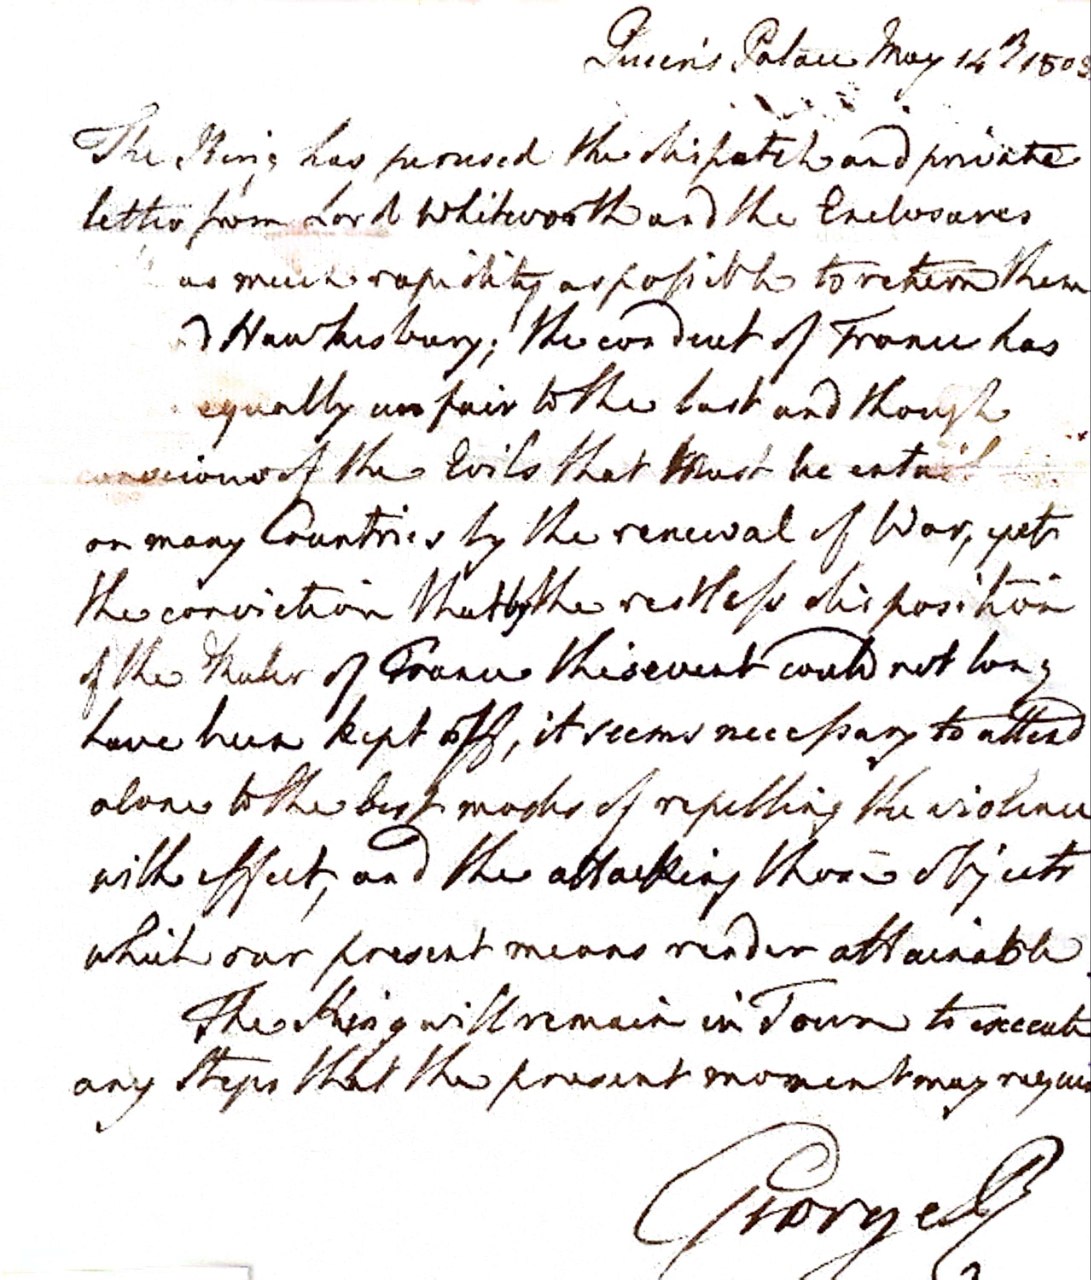 Queen's Palace May 14th 1803
The King has perused the dispatch and private
letter from Lord Whitworth and the Enclosures
as much rapidity as possible to return them
d Hawkesbury; the conduct of France has
equally unfair to the last and though
conscious of the Evils that must be entail
on many Countries by the renewal of War, yet
the conviction that by the restless disposition
of the Ruler of France this event could not long
have been kept off, it seems necessary to attend
alone to the best modes of repelling the violence
with effect, and the attacking those objects
which our present means render attainable.
The King will remain in Town to execute
any Steps that the present moment may requi
George R